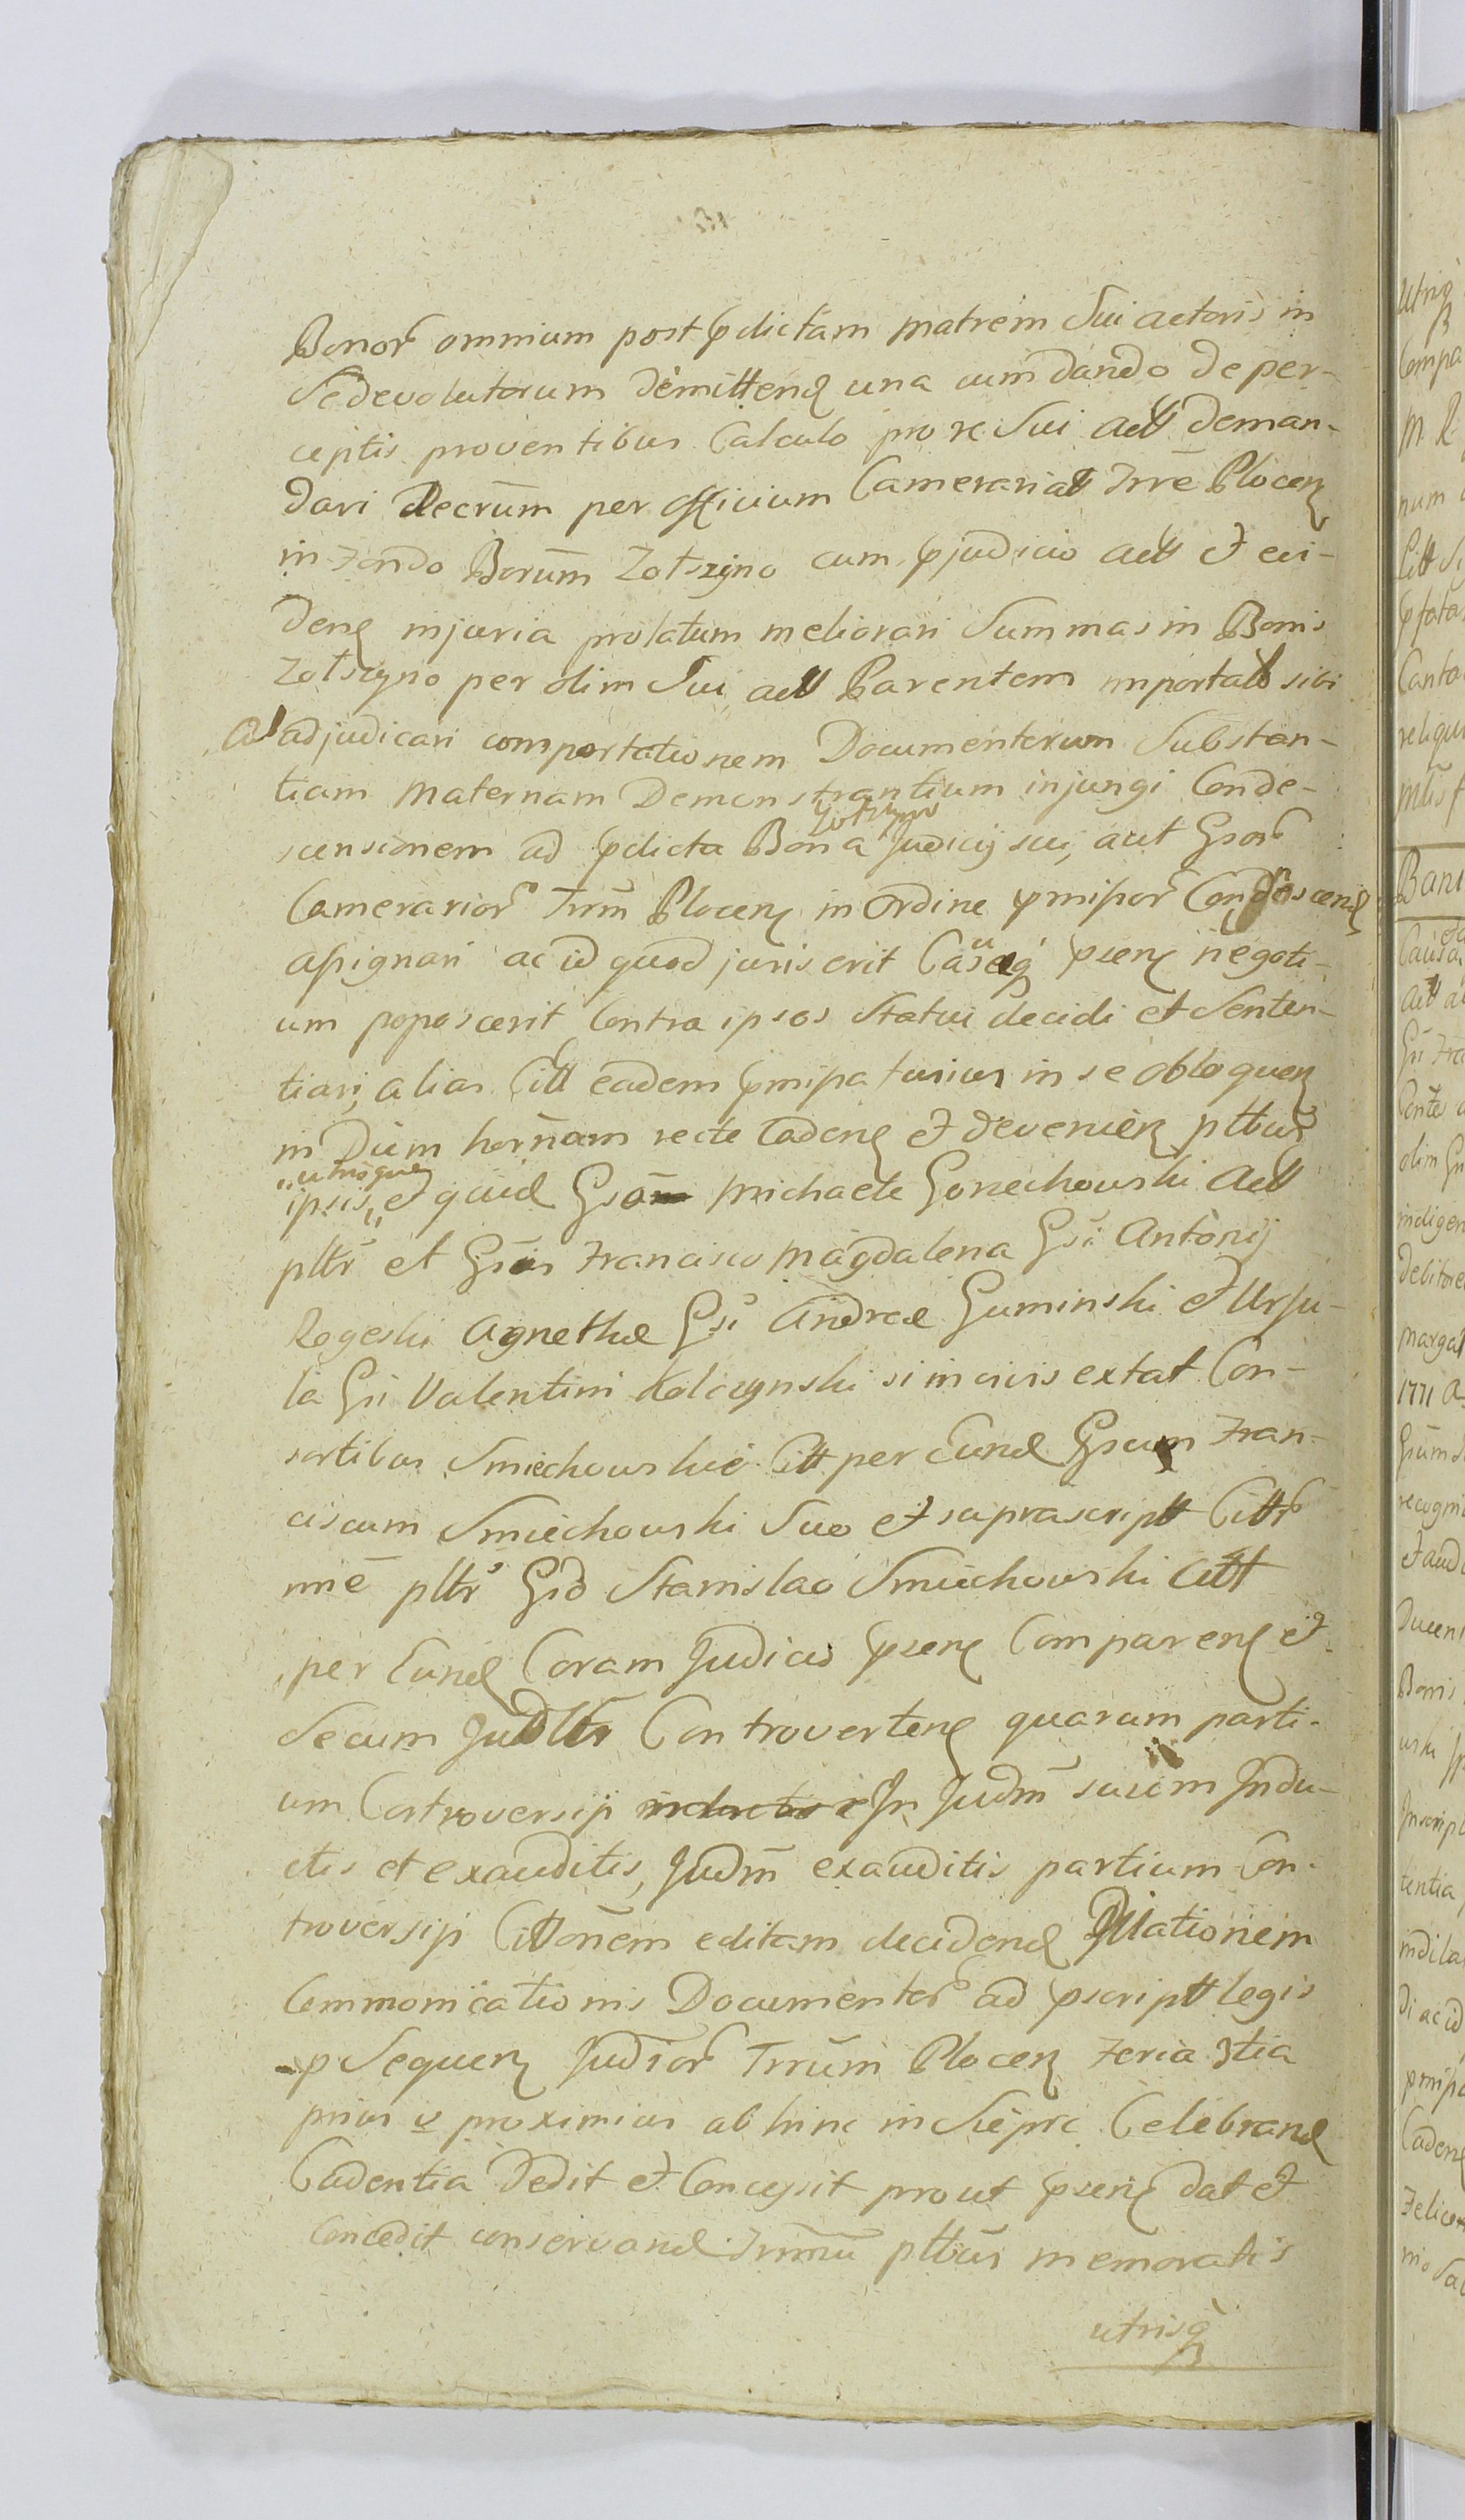 Bonor omnium post pdictam matrem Sui actoris in
Se devolutorum demitten una cum dando de per-
ceptis proventibus Calculo pro re Sui act deman-
dari Decrūm per officium Camerariat Trrē Plocen
in Fondo Borūm Zotszyno cum pjudicio act et evi-
den injuria prolatum meliorari Summas in Bonis
Zotszyno per olim Sui act Parentem importat sibi
adjudicari comportationem Documentorum Substan-
tiam Maternam Demonstrantium injungi Conde-
Zotszyno
scensionem ad pdicta Bona Judicij sui, aut Gsor
Camerarior Trrm Plocen in ordine pmissor Condescen
assignari ac id quod juris erit Causaeq psens negoti-
um poposcerit Contra ipsos Statui decidi et Senten-
tiari, alias Citt eadem pmissa in se obloquen
in Diem hornam recte Caden et devenien pttbus
utrisque
ipsis et quid Gso Michaele Goriechowski Act
pltr et Gsis Francisco Magdalena Gsi Antonij
Rogeski Agnethae Gsi Andreae Guminski et Ursu-
la Gsi Valentini Kolczynski si in vivis extat Con-
sortibus Smiechowskie Citt per Eund Gsum Fran-
ciscum Smiechowski Suo et suprascript Cittr
nnē pltr Gso Stanislao Smiechowski Citt
per Eund Coram Judicio psen Comparen et
Secum Judltr Controverten quarum parti-
um Controversijs In Judm suum Indu-
ctis et exauditis, Judm exauditis partium Con-
troversijs Cittonem editam deciden Dilationem
Communicationis Documentor ad pscript legis
p Sequen Judior Trrūm Plocen Feria 3tia
prius v proximius ab hinc in Sieprc Celebrand
Cadentia Dedit et Concessit prout psens dat et
Concedit conservand Trrnum pttbus memoratis
utrisq